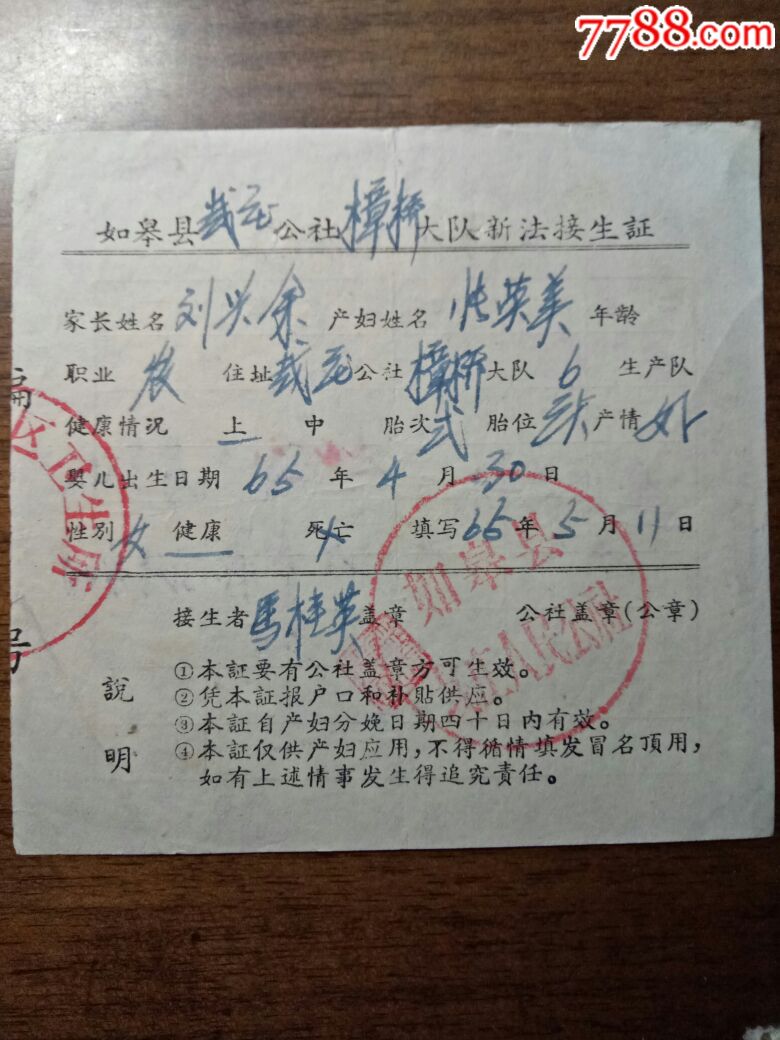 7788.com
如皋县 公社樟桥大队新法接生証
家长姓名刘兴余 产妇姓名张英美 年龄
职业 农 住址 公社樟桥大队 6 生产队
健康情况 上 中 胎次式 胎位 产情
婴儿出生日期 65 年 4 月 30 日
性别 女 健康 死亡 填写 65 年 5 月 11 日
接生者 馬桂英 盖章 公社盖章(公章)
編
号
区卫生所
如皋县
人民公社
說明
①本証要有公社盖章方可生效。
②凭本証报户口和补贴供应。
③本証自产妇分娩日期四十日内有效。
④本証仅供产妇应用,不得循情填发冒名頂用,
如有上述情事发生得追究責任。